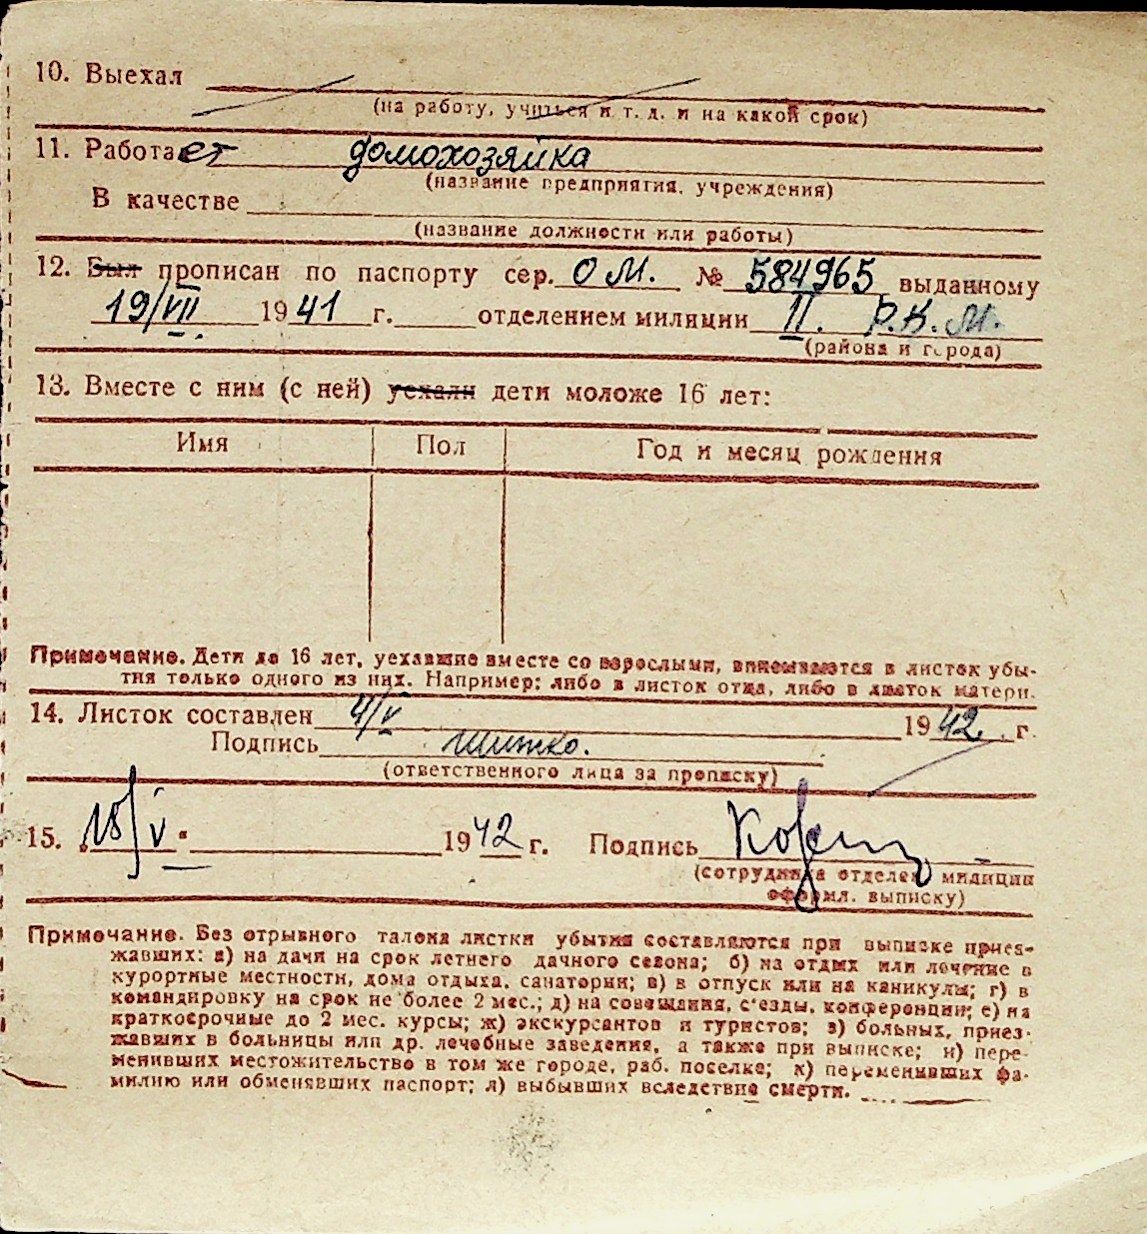 10. Выехал
(на работу, учиться и т. д. и на какой срок)
11. Работает домохозяйка
(название предприятия, учреждения)
В качестве
(название должности или работы)
12. Был прописан по паспорту сер. ОМ. № 584965 выданному
19/VII 1941 г. отделением милиции II. Р.К.М.
(района и города)
13. Вместе с ним (с ней) уехали дети моложе 16 лет:
Имя Пол Год и месяц рождения
Примечание. Дети до 16 лет, уехавшие вместе со взрослыми, вписываются в листок убы-
тия только одного из них. Например: либо в листок отца, либо в листок матери.
14. Листок составлен 4/V 1942 г.
Подпись
(ответственного лица за прописку)
15. „18/V“ 1942 г. Подпись
(сотрудника отделен. милиции
оформл. выписку)
Примечание. Без отрывного талона листки убытия составляются при выписке приез-
жавших: а) на дачи на срок летнего дачного сезона; б) на отдых или лечение в
курортные местности, дома отдыха, санатории; в) в отпуск или на каникулы; г) в
командировку на срок не более 2 мес.; д) на совещания, с'езды, конференции; е) на
краткосрочные до 2 мес. курсы; ж) экскурсантов и туристов; з) больных, приез-
жавших в больницы или др. лечебные заведения, а также при выписке; и) пере-
менивших местожительство в том же городе, раб. поселке; к) переменивших фа-
милию или обменявших паспорт; л) выбывших вследствие смерти.